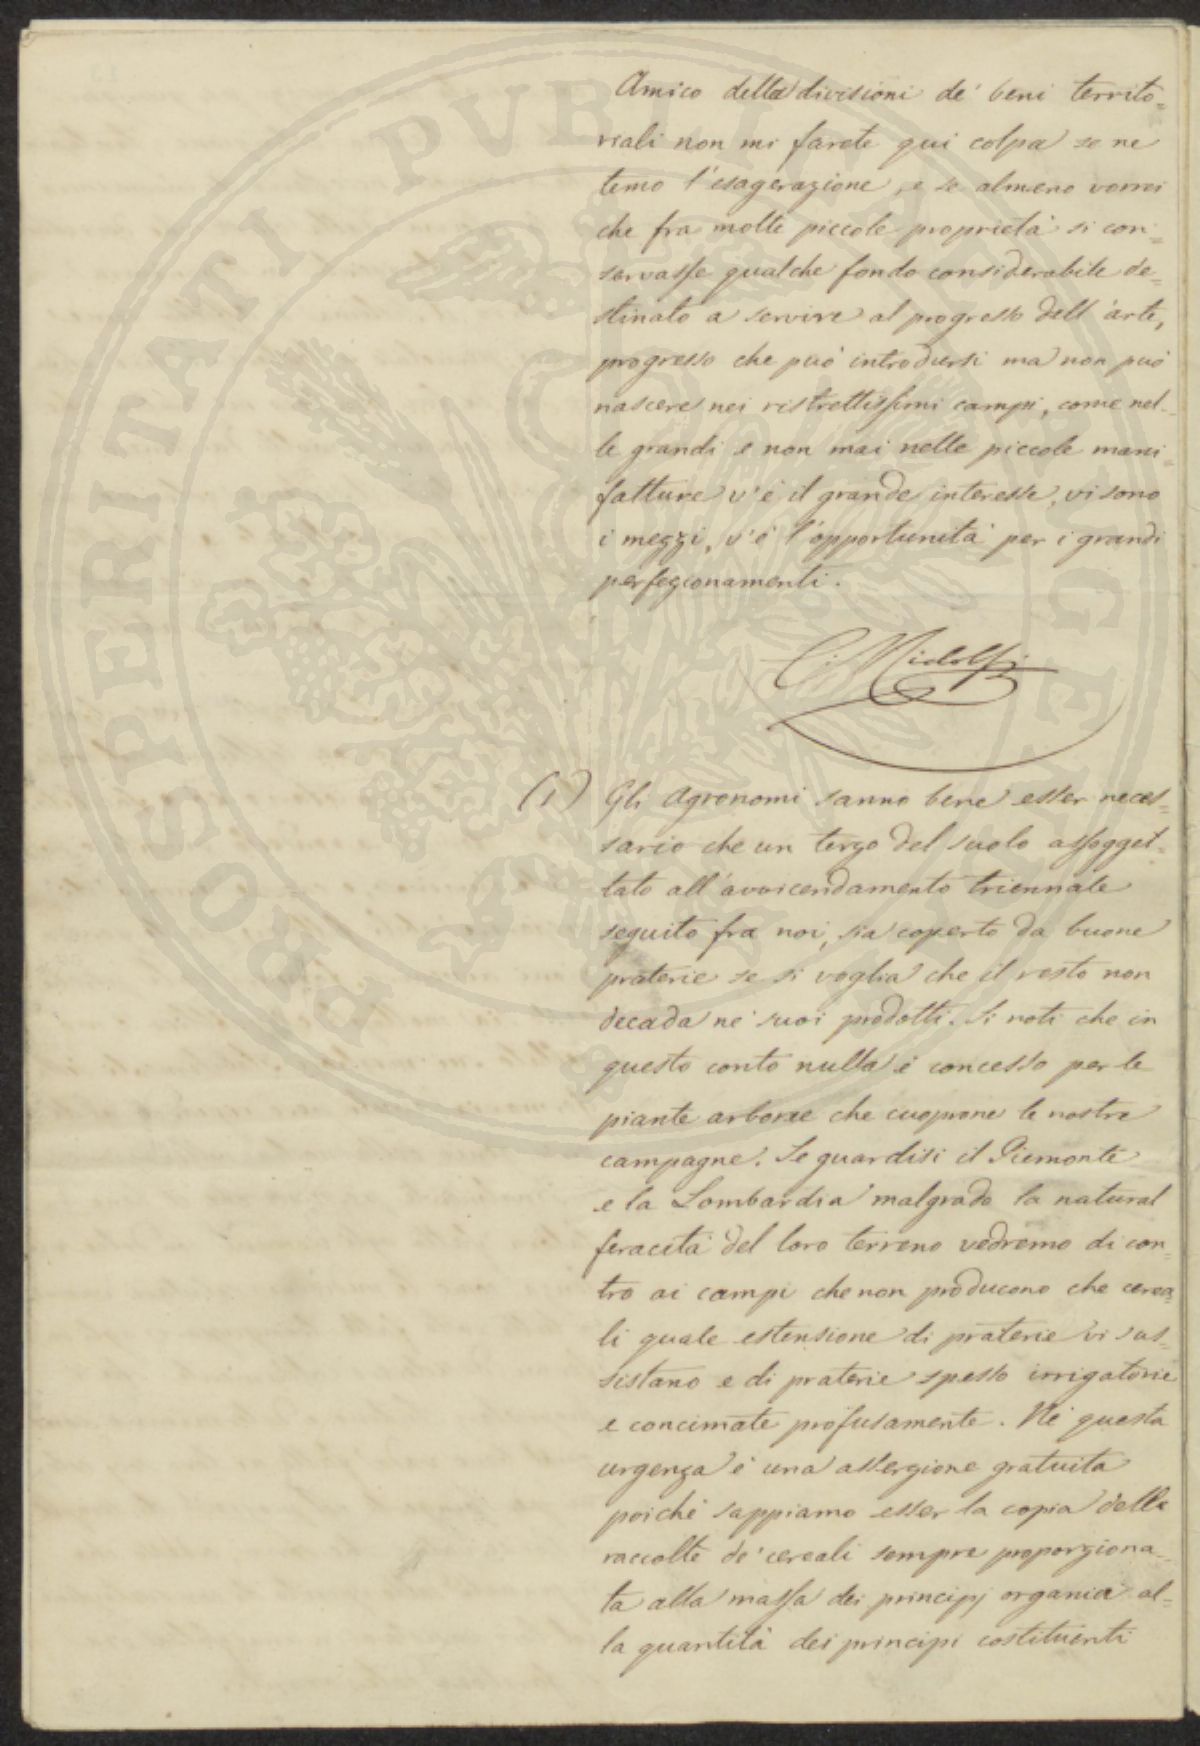 Amico della divisioni de' beni territo=
riali non mi farete qui colpa se ne
temo l'esagerazione, e se almeno vorrei
che fra molte piccole proprietà si con=
servasse qualche fondo considerabile de=
stinato a servire al progresso dell'arte,
progresso che può introdursi ma non può
nascere nei ristrettissimi campi, come nel=
le grandi e non mai nelle piccole mani=
fatture v'è il grande interesse, vi sono
i mezzi, v'è l'opportunità per i grandi
perfezionamenti.
C. Ridolfi
(1) Gli Agronomi sanno bene esser neces=
sario che un terzo del suolo assogget=
tato all'avvicendamento triennale
seguito fra noi, sia coperto da buone
praterie se si voglia che il resto non
decada ne' suoi prodotti. Si noti che in
questo conto nulla è concesso per le
piante arboree che cuoprone le nostre
campagne. Se guardisi il Piemonte
e la Lombardia malgrado la natural
feracità del loro terreno vedremo di con=
tro ai campi che non producono che cerea=
li quale estensione di praterie vi sus=
sistano e di praterie spesso irrigatorie
e concimate profusamente. Nè questa
urgenza è una asserzione gratuita
poichè sappiamo esser la copia delle
raccolte de' cereali sempre proporziona=
ta alla massa dei principj organici al=
la quantità dei principi costituenti
PROSPERITATI PVBLICAE AVGENDAE